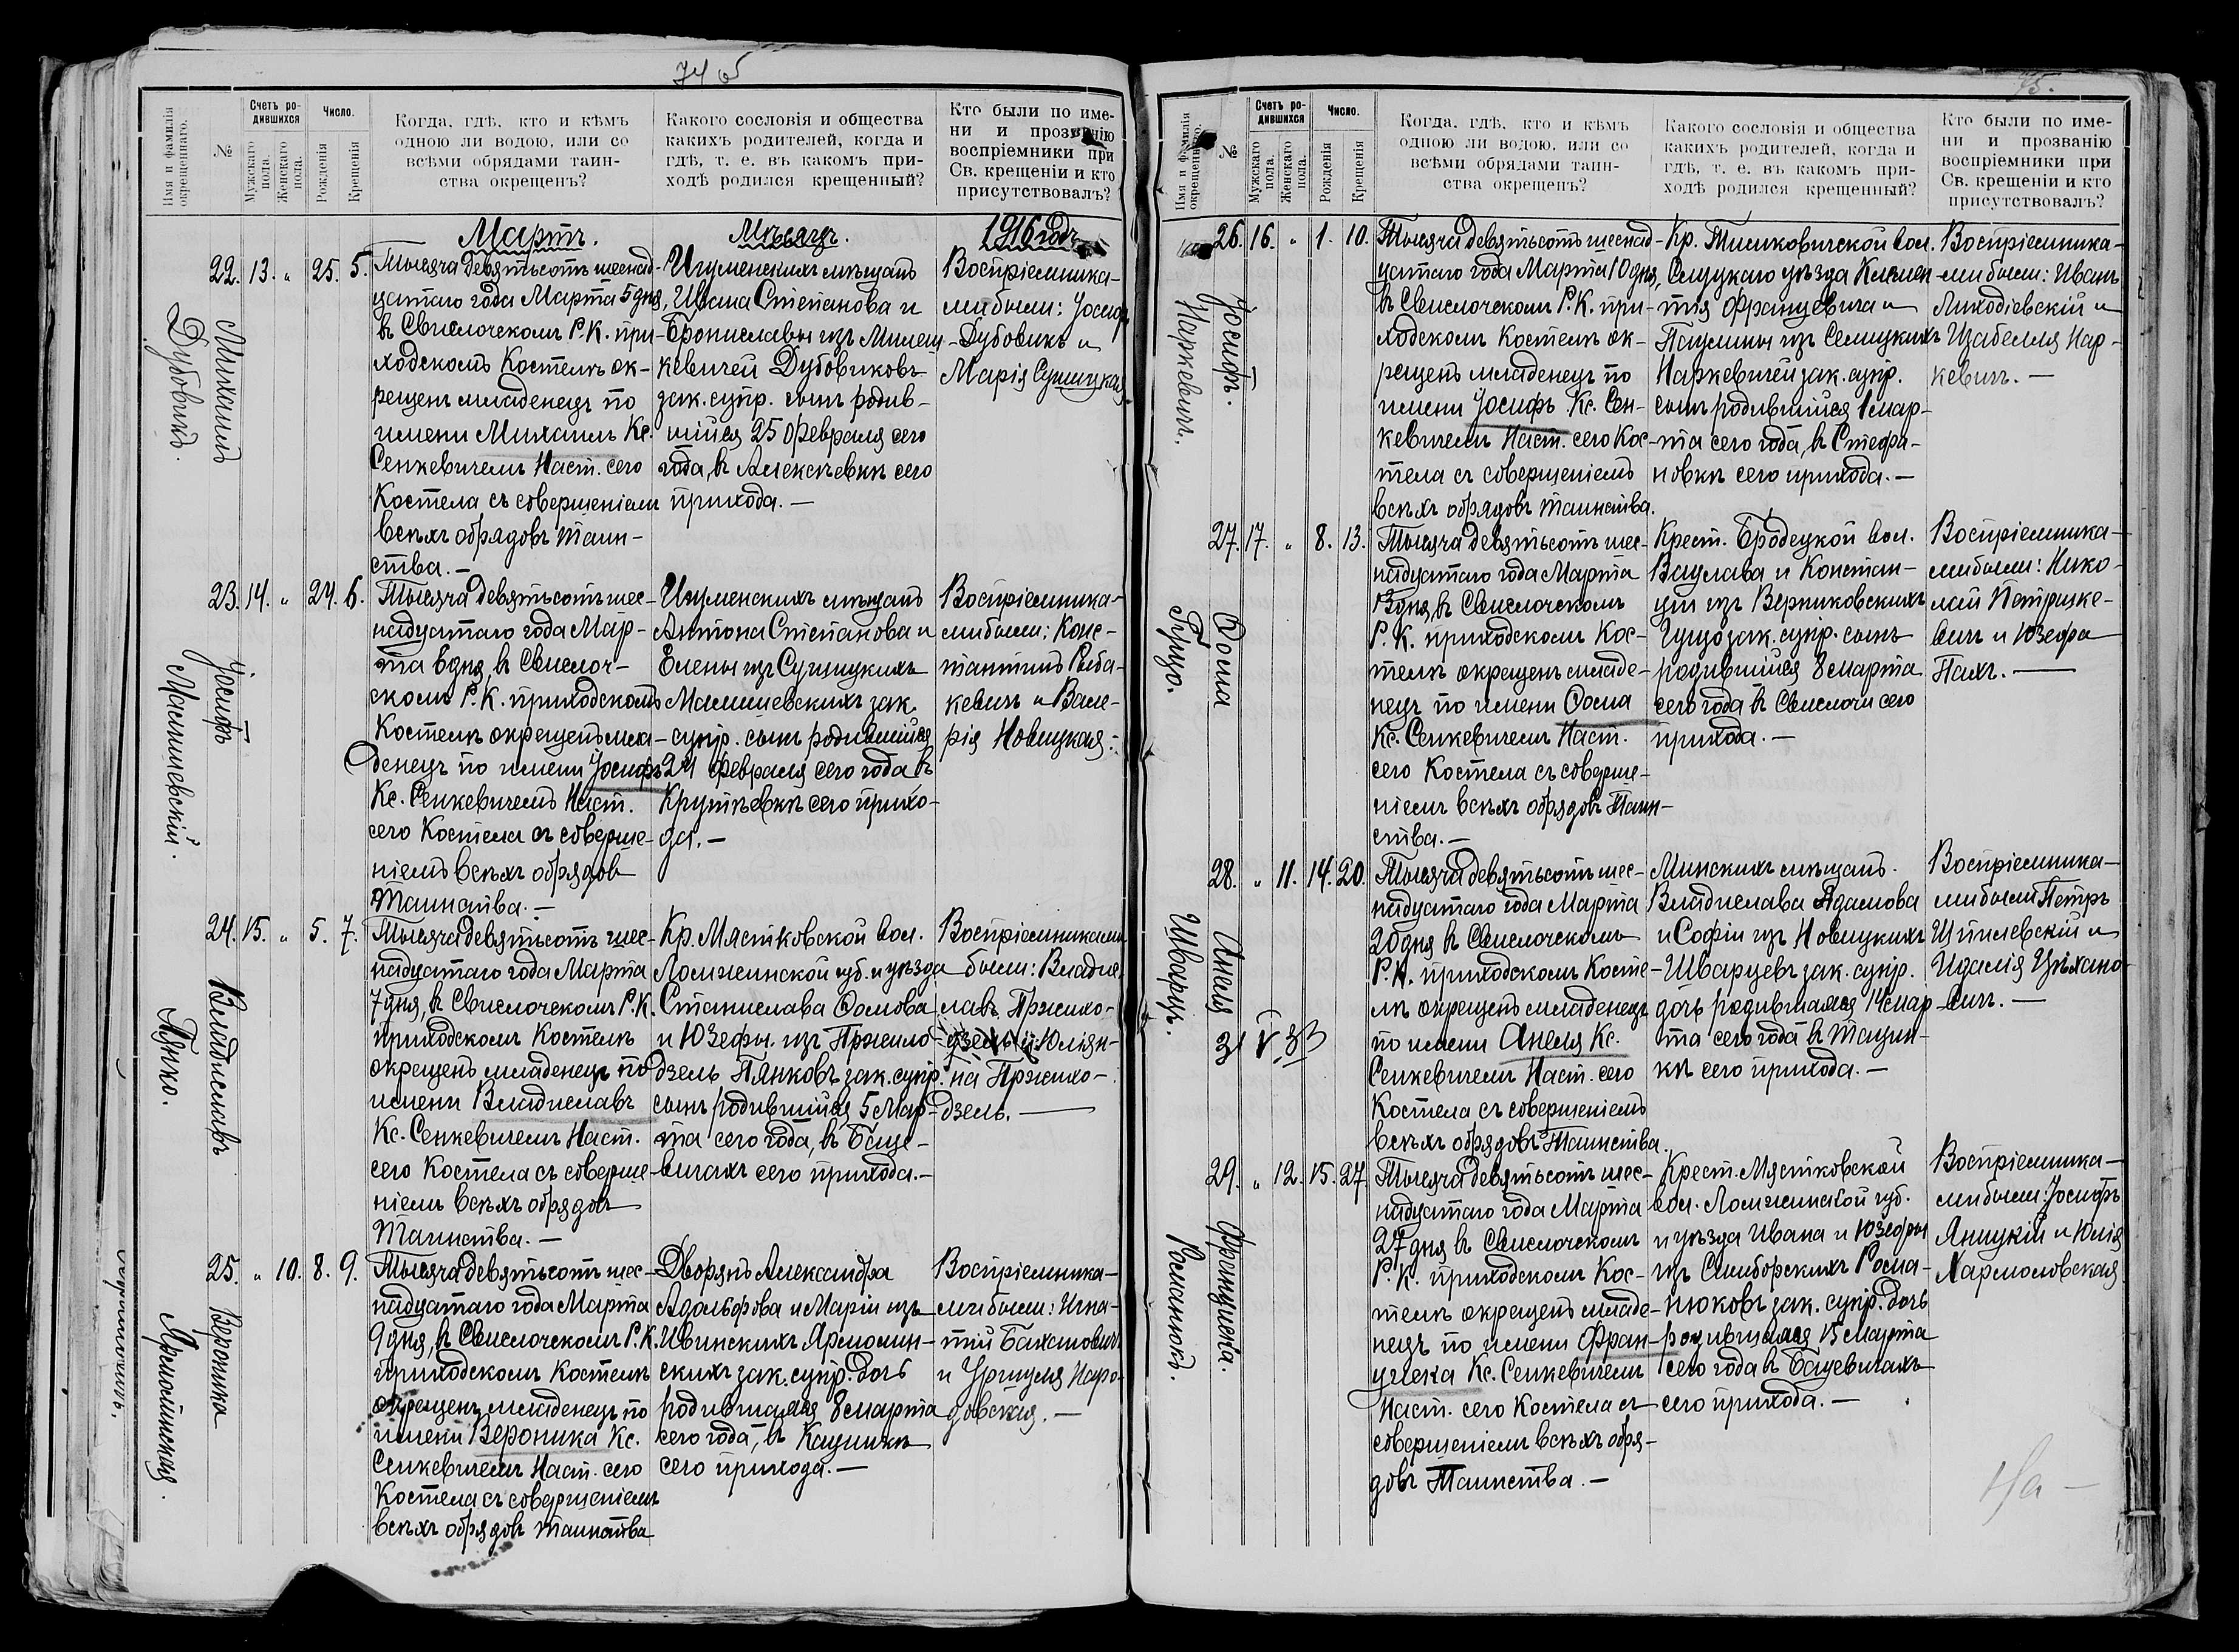 74 об
Имя и фамилія окрещеннаго.
№
Счетъ родившихся
Мужскаго пола.
Женскаго пола.
Число.
Рожденія
Крещенія
Когда, гдѣ, кто и кѣмъ
одною ли водою, или со
всѣми обрядами таин-
ства окрещенъ?
Какого сословія и общества
какихъ родителей, когда и
гдѣ, т. е. въ какомъ при-
ходѣ родился крещенный?
Кто были по име-
ни и прозванію
воспріемники при
Св. крещеніи и кто
присутствовалъ?
Мартъ. Мѣсяцъ. 1916 годъ
Михаилъ
Дубовикъ.
22. 13. „ 25. 5.
Тысяча девятьсотъ шеснад-
цатаго года Марта 5 дня,
въ Свислочскомъ Р. К. при-
ходскомъ Костелѣ ок-
рещенъ младенецъ по
имени Михаилъ Кс.
Сенкевичемъ Наст. сего
Костела съ совершеніемъ
всѣхъ обрядовъ Таин-
ства. —
Игуменскихъ мѣщанъ
Ивана Степанова и
Брониславы изъ Милеш-
кевичей Дубовиковъ
зак. супр. сынъ родив-
шійся 25 Февраля сего
года, въ Алексѣевкѣ сего
прихода. —
Воспріемника-
ми были: Іосифъ
Дубовикъ и
Марія Сушицкая
Іосифъ
Малишевскій.
23. 14. „ 24. 6.
Тысяча девятьсотъ шес-
надцатаго года Мар-
та 6 дня, въ Свислоч-
скомъ Р. К. приходскомъ
Костелѣ окрещенъ мла-
денецъ по имени Іосифъ
Кс. Сенкевичемъ Наст.
сего Костела съ соверше-
ніемъ всѣхъ обрядовъ
Таинства. —
Игуменскихъ мѣщанъ
Антона Степанова и
Елены изъ Сушицкихъ
Малишевскихъ зак.
супр. сынъ родившійся
24 Февраля сего года въ
Крутѣевкѣ сего прихо-
да. —
Воспріемника-
ми были: Конс-
тантинъ Рыба-
кевичъ и Вале-
рія Новицкая.
Владиславъ
Пянко.
24. 15. „ 5. 7.
Тысяча девятьсотъ шес-
надцатаго года Марта
7 дня, въ Свислочскомъ Р. К.
приходскомъ Костелѣ
окрещенъ младенецъ по
имени Владиславъ
Кс. Сенкевичемъ Наст.
сего Костела съ соверше-
ніемъ всѣхъ обрядовъ
Таинства. —
Кр. Мястковской вол.
Ломжинской губ. и уѣзда
Станислава Ѳомова
и Юзефы изъ Пржихо-
дзель Пянковъ зак. супр.
сынъ родившійся 5 Мар-
та сего года, въ Баце-
вичахъ сего прихода. —
Воспріемниками
были: Владис-
лавъ Пржихо-
дзель и Юліян-
на Пржихо-
дзель. —
Вероника
Ярмолинская.
25. „ 10. 8. 9.
Тысяча девятьсотъ шес-
надцатаго года Марта
9 дня, въ Свислочскомъ Р. К.
приходскомъ Костелѣ
окрещенъ младенецъ по
имени Вероника Кс.
Сенкевичемъ Наст. сего
Костела съ совершеніемъ
всѣхъ обрядовъ таинства
Дворянъ Александра
Адольфова и Маріи изъ
Ивинскихъ Ярмолин-
скихъ зак. супр. дочь
родившаяся 8 марта
сего года, въ
сего прихода. —
Воспріемника-
ми были: Игна-
тій Бахановичъ
и Уршуля Наро-
довская. —
75.
Имя и фамилія окрещеннаго.
№
Счетъ родившихся
Мужскаго пола.
Женскаго пола.
Число.
Рожденія
Крещенія
Когда, гдѣ, кто и кѣмъ
одною ли водою, или со
всѣми обрядами таин-
ства окрещенъ?
Какого сословія и общества
какихъ родителей, когда и
гдѣ, т. е. въ какомъ при-
ходѣ родился крещенный?
Кто были по име-
ни и прозванію
воспріемники при
Св. крещеніи и кто
присутствовалъ?
Іосифъ.
Наркевичъ.
26. 16. „ 1. 10.
Тысяча девятьсотъ шеснад-
цатаго года Марта 10 дня,
въ Свислочскомъ Р. К. при-
ходскомъ Костелѣ ок-
рещенъ младенецъ по
имени Іосифъ Кс. Сен-
кевичемъ Наст. сего Кос-
тела съ совершеніемъ
всѣхъ обрядовъ таинства.
Кр. Тимковичской вол.
Слуцкаго уѣзда Климен-
тія Францевича и
Паулины изъ Селицкихъ
Наркевичей зак. супр.
сынъ родившійся 1 мар-
та сего года, въ Стефа-
новкѣ сего прихода. —
Воспріемника-
ми были: Иванъ
Лиходіевскій и
Изабелля Нар-
кевичъ. —
Ѳома
Гуцо.
27. 17. „ 8. 13.
Тысяча девятьсотъ шес-
надцатаго года Марта
13 дня, въ Свислочскомъ
Р. К. приходскомъ Кос-
телѣ окрещенъ младе-
нецъ по имени Ѳома
Кс. Сенкевичемъ Наст.
сего Костела съ соверше-
ніемъ всѣхъ обрядовъ Таин-
ства. —
Крест. Бродецкой вол.
Вацлава и Констан-
ціи изъ Верниковскихъ
Гуцо зак. супр. сынъ
родившійся 8 марта
сего года въ Свислочи сего
прихода. —
Воспріемника-
ми были: Нико-
лай Петрушке-
вичъ и Юзефа
Пахъ. —
Анеля
Шварцъ.
28. „ 11. 14. 20.
Тысяча девятьсотъ шес-
надцатаго года Марта
20 дня въ Свислочскомъ
Р. К. приходскомъ Косте-
лѣ окрещенъ младенецъ
по имени Анеля Кс.
Сенкевичемъ Наст. сего
Костела съ совершеніемъ
всѣхъ обрядовъ Таинства.
Минскихъ мѣщанъ.
Владислава Адамова
и Софіи изъ Новицкихъ
Шварцевъ зак. супр.
дочь родившаяся 14 мар-
та сего года въ
кѣ сего прихода. —
Воспріемника-
ми были Петръ
Шпилевскій и
Идалія Цѣхано-
вичъ. —
Францишка.
Романюкъ.
29. „ 12. 15. 27.
Тысяча девятьсотъ шес-
надцатаго года Марта
27 дня въ Свислочскомъ
Р. К. приходскомъ Кос-
телѣ окрещенъ младе-
нецъ по имени Фран-
цишка Кс. Сенкевичемъ
Наст. сего Костела съ
совершеніемъ всѣхъ обря-
довъ Таинства. —
Крест. Мястковской
вол. Ломжинской губ.
и уѣзда Ивана и Юзефы
изъ Самборскихъ Рома-
нюковъ зак. супр. дочь
родившаяся 15 Марта
сего года въ Бацевичахъ
сего прихода. —
Воспріемника-
ми были: Іосифъ
Яницкій и Юлія
Хармоловская